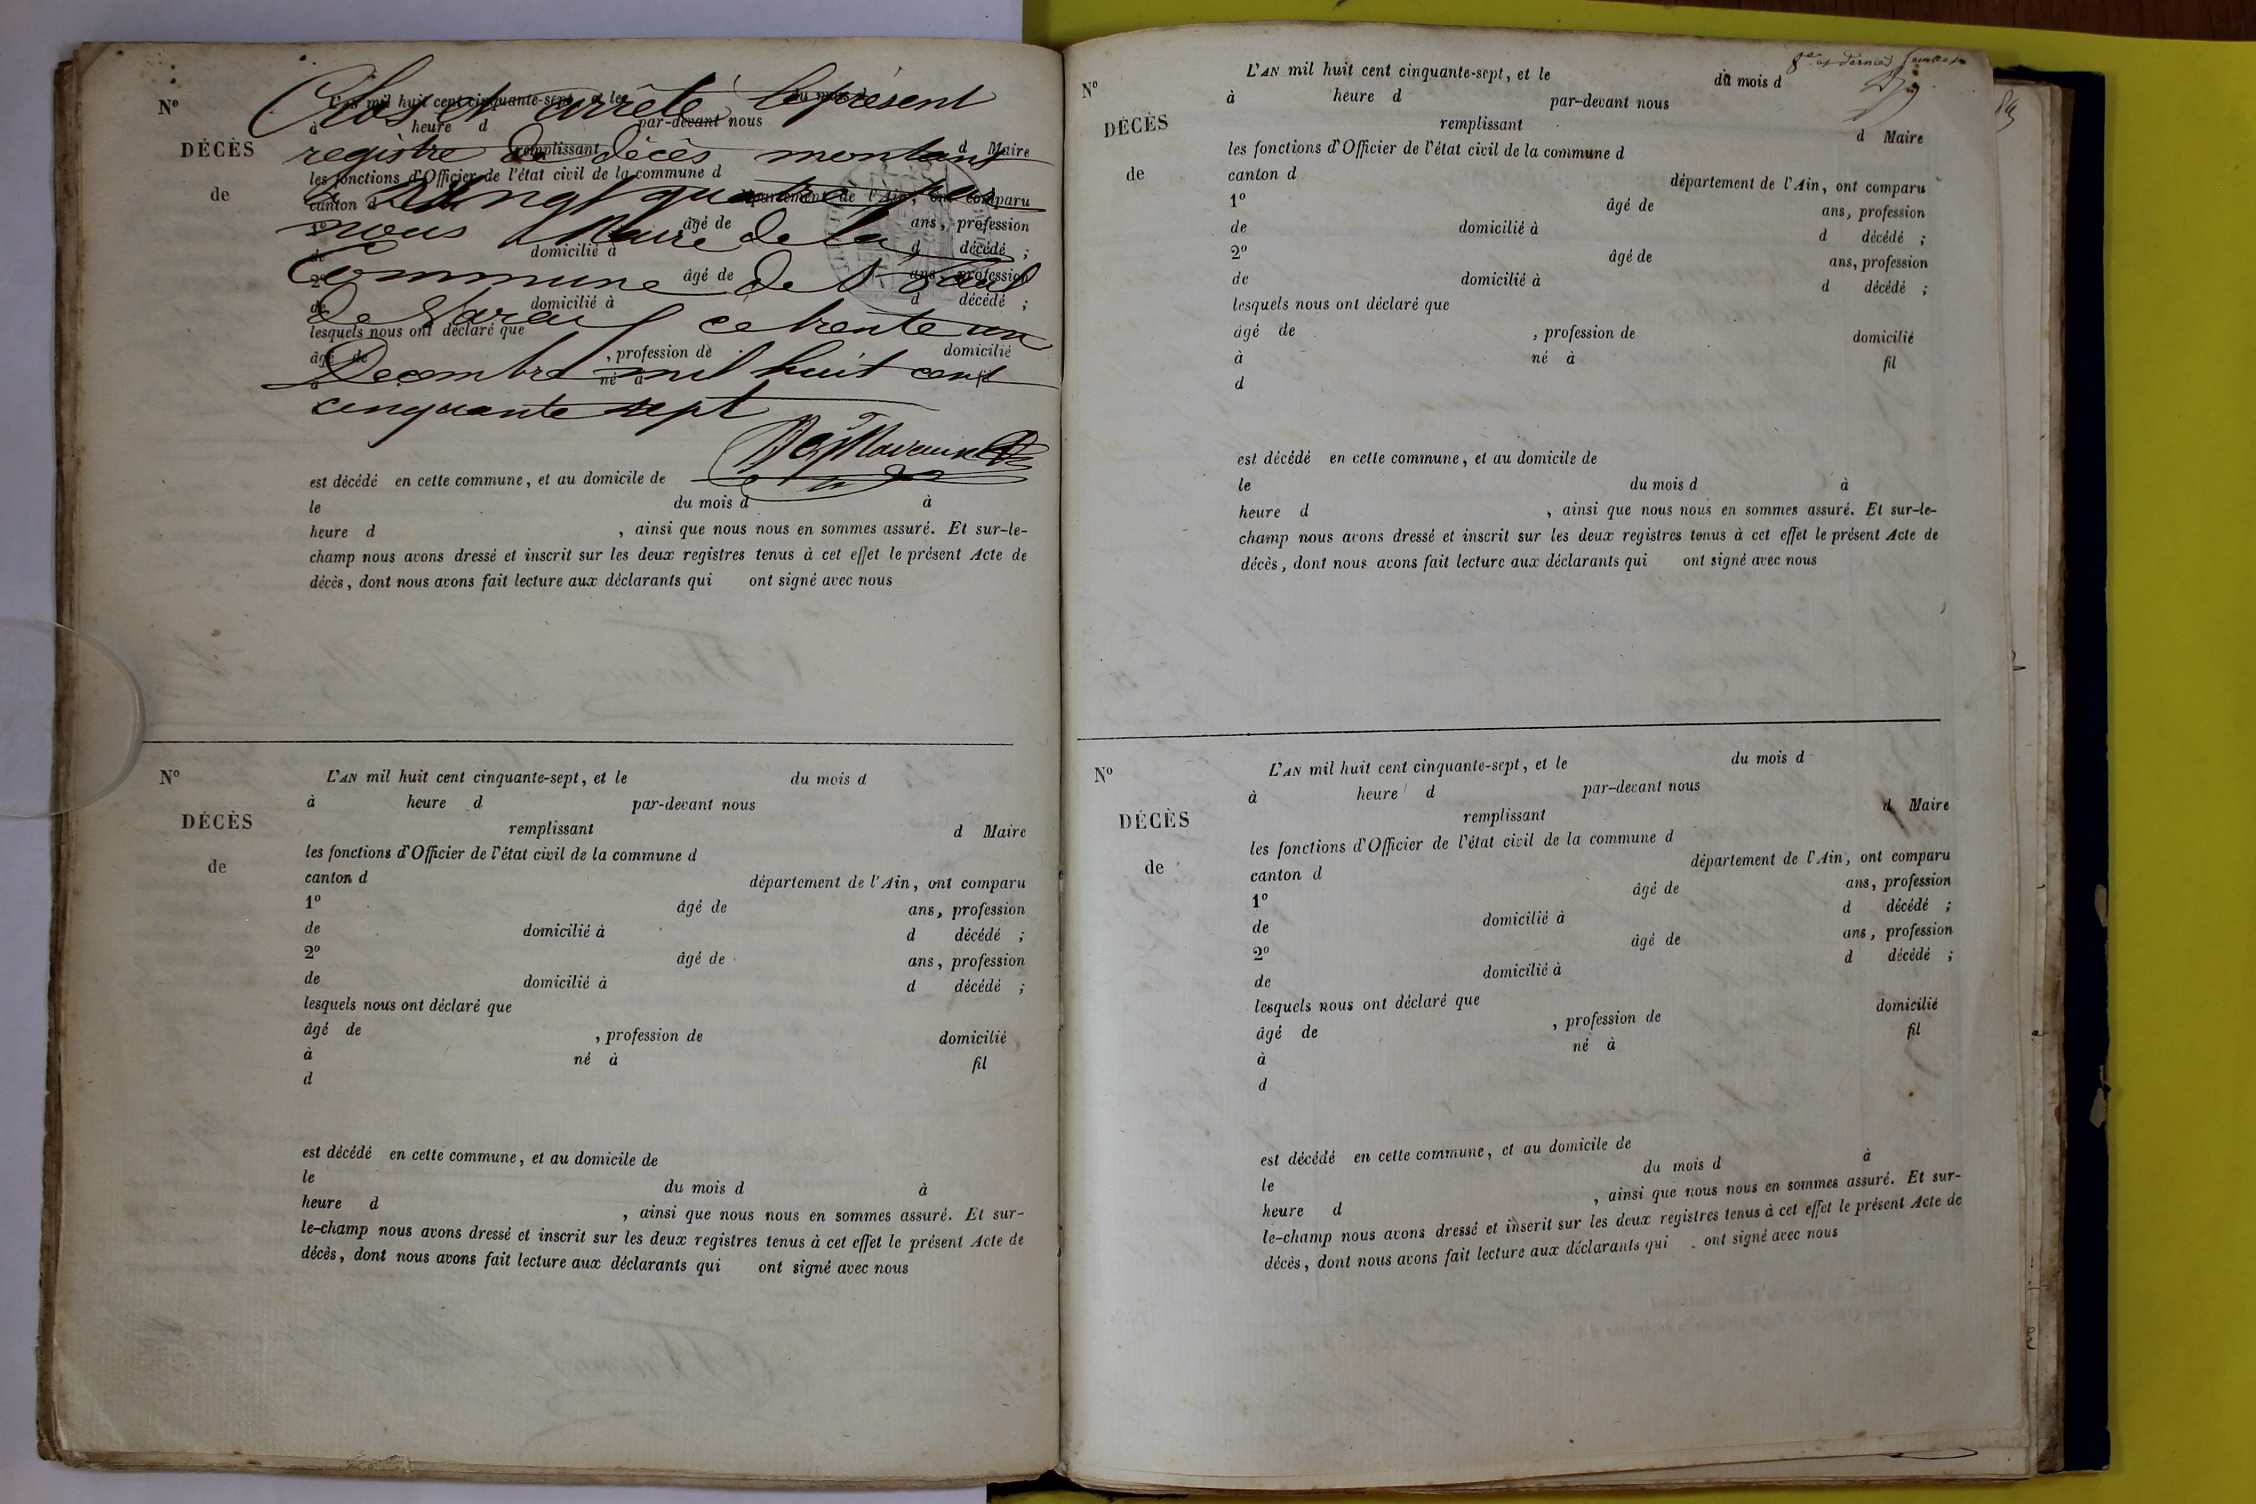 Clos et arrêté le présent
registre de décès montant
à vingt quatre par
nous Maire de la
Commune de St Paul
de Varax ce trente un
Décembre mil huit cent
cinquante sept
No L'AN mil huit cent cinquante-sept, et le du mois d
à heure d par-devant nous
DÉCÈS remplissant d Maire
les fonctions d'Officier de l'état civil de la commune d
de canton d département de l'Ain, ont comparu
1o âgé de ans, profession
de domicilié à d décédé ;
2o âgé de ans, profession
de domicilié à d décédé ;
lesquels nous ont déclaré que
âgé de , profession de domicilié
à né à fil
est décédé en cette commune, et au domicile de
le du mois d à
heure d , ainsi que nous nous en sommes assuré. Et sur-le-
champ nous avons dressé et inscrit sur les deux registres tenus à cet effet le présent Acte de
décès, dont nous avons fait lecture aux déclarants qui ont signé avec nous
No L'AN mil huit cent cinquante-sept, et le du mois d
à heure d par-devant nous
DÉCÈS remplissant d Maire
les fonctions d'Officier de l'état civil de la commune d
de canton d département de l'Ain, ont comparu
1o âgé de ans, profession
de domicilié à d décédé ;
2o âgé de ans, profession
de domicilié à d décédé ;
lesquels nous ont déclaré que
âgé de , profession de domicilié
à né à fil
d
est décédé en cette commune, et au domicile de
le du mois d à
heure d , ainsi que nous nous en sommes assuré. Et sur-
le-champ nous avons dressé et inscrit sur les deux registres tenus à cet effet le présent Acte de
décès, dont nous avons fait lecture aux déclarants qui ont signé avec nous
8e et dernier feuillet
No L'AN mil huit cent cinquante-sept, et le du mois d
à heure d par-devant nous
DÉCÈS remplissant d Maire
les fonctions d'Officier de l'état civil de la commune d
de canton d département de l'Ain, ont comparu
1o âgé de ans, profession
de domicilié à d décédé ;
2o âgé de ans, profession
de domicilié à d décédé ;
lesquels nous ont déclaré que
âgé de , profession de domicilié
à né à fil
d
est décédé en cette commune, et au domicile de
le du mois d à
heure d , ainsi que nous nous en sommes assuré. Et sur-le-
champ nous avons dressé et inscrit sur les deux registres tenus à cet effet le présent Acte de
décès, dont nous avons fait lecture aux déclarants qui ont signé avec nous
No L'AN mil huit cent cinquante-sept, et le du mois d
à heure d par-devant nous
DÉCÈS remplissant d Maire
les fonctions d'Officier de l'état civil de la commune d
de canton d département de l'Ain, ont comparu
1o âgé de ans, profession
de domicilié à d décédé ;
2o âgé de ans, profession
de domicilié à d décédé ;
lesquels nous ont déclaré que
âgé de , profession de domicilié
à né à fil
d
est décédé en cette commune, et au domicile de
le du mois d à
heure d , ainsi que nous nous en sommes assuré. Et sur-
le-champ nous avons dressé et inscrit sur les deux registres tenus à cet effet le présent Acte de
décès, dont nous avons fait lecture aux déclarants qui ont signé avec nous